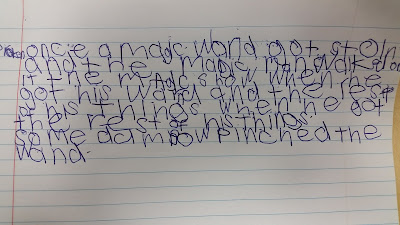 oncie a magic wand got stoln
and the magic man walk
it the magic show when he
got his wand and the rest
this rthings when he got
the rest of his things.
some
the
wand.